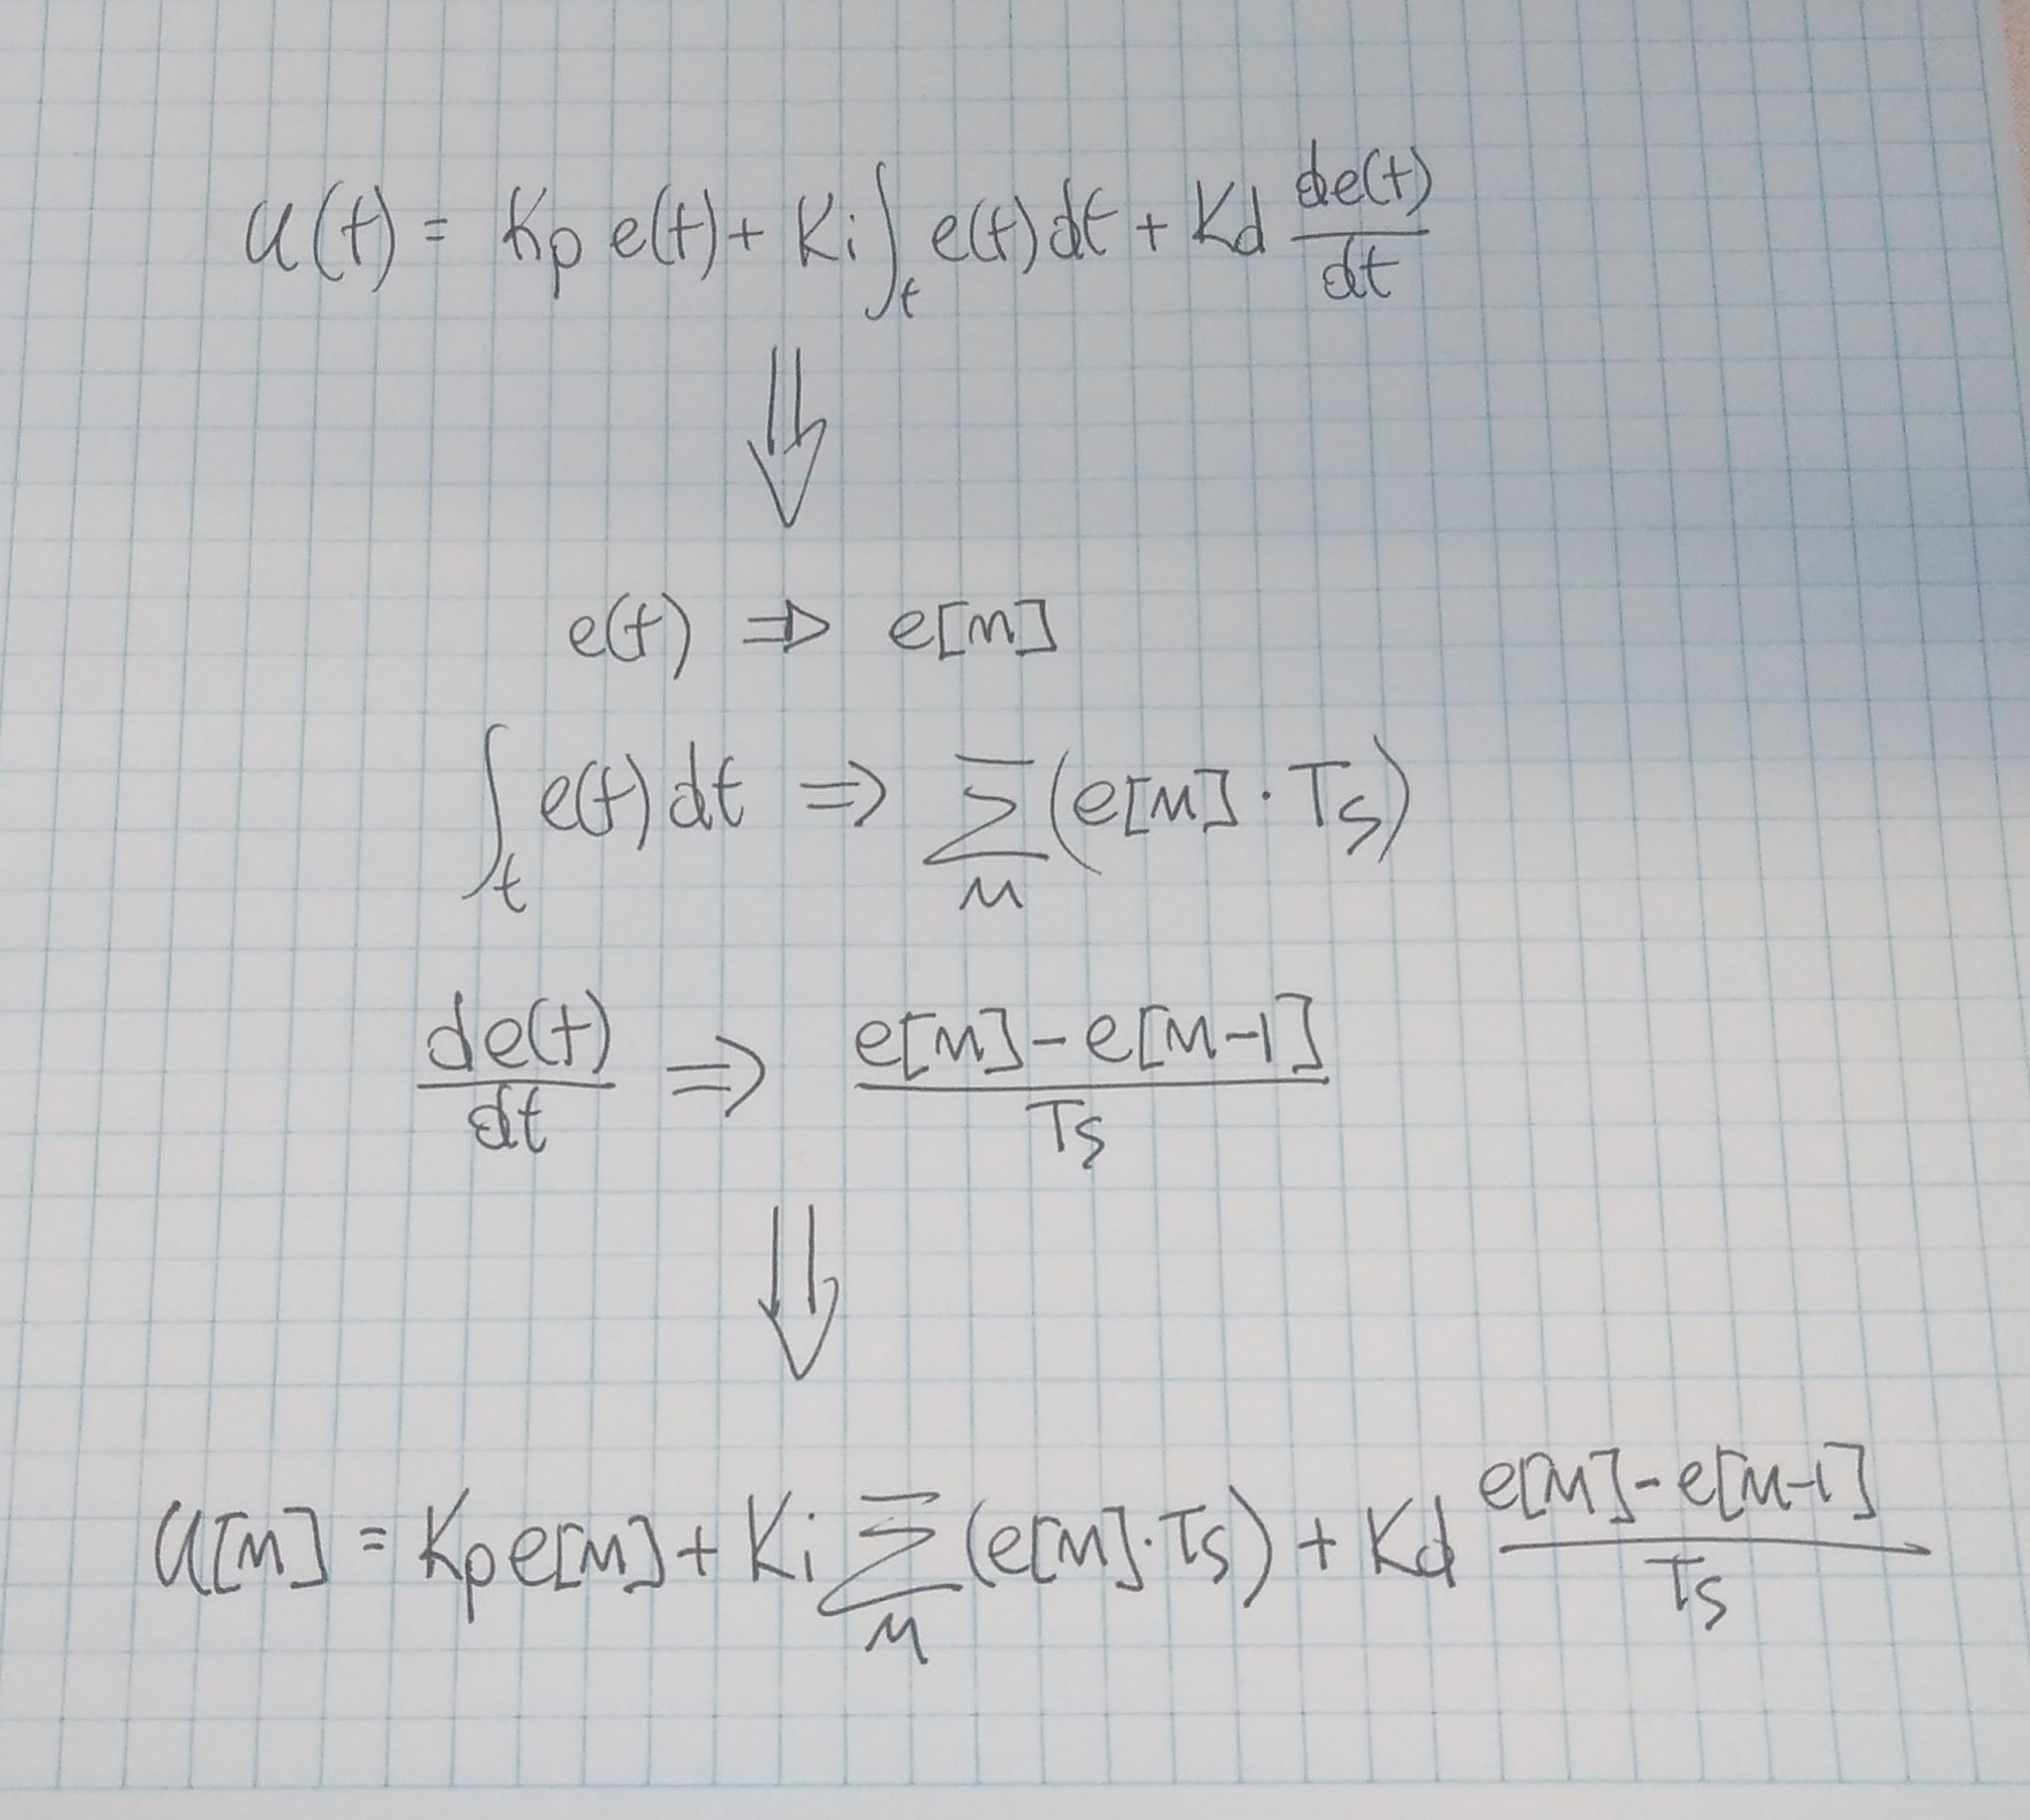 u(t) = Kp e(t) + Ki ∫t e(t) dt + Kd de(t)/dt
⇓
e(t) ⇒ e[n]
∫t e(t) dt ⇒ Σn (e[n] · Ts)
de(t)/dt ⇒ (e[n] - e[n-1])/Ts
⇓
u[n] = Kp e[n] + Ki Σn (e[n] · Ts) + Kd (e[n] - e[n-1])/Ts